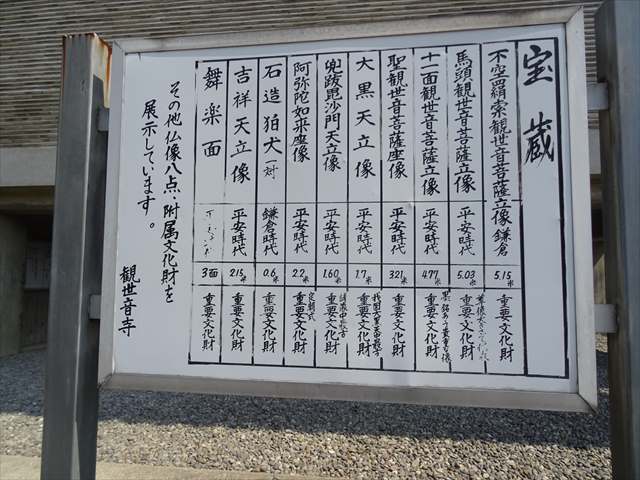 宝蔵
不空羂索観世音菩薩立像 鎌倉 5.15米 重要文化財
馬頭観世音菩薩立像 平安時代 5.03米 重要文化財
十一面観世音菩薩立像 平安時代 4.77米 重要文化財
聖観世音菩薩座像 平安時代 3.21米 重要文化財
大黒天立像 平安時代 1.7米 重要文化財
兜跋毘沙門天立像 平安時代 1.60米 重要文化財
阿弥陀如来座像 平安時代 2.2米 重要文化財 定朝式
石造狛犬 一対 鎌倉時代 0.6米 重要文化財
吉祥天立像 平安時代 2.15米 重要文化財
舞楽面 3面 重要文化財
その他仏像八点、附属文化財を
展示しています。
観世音寺